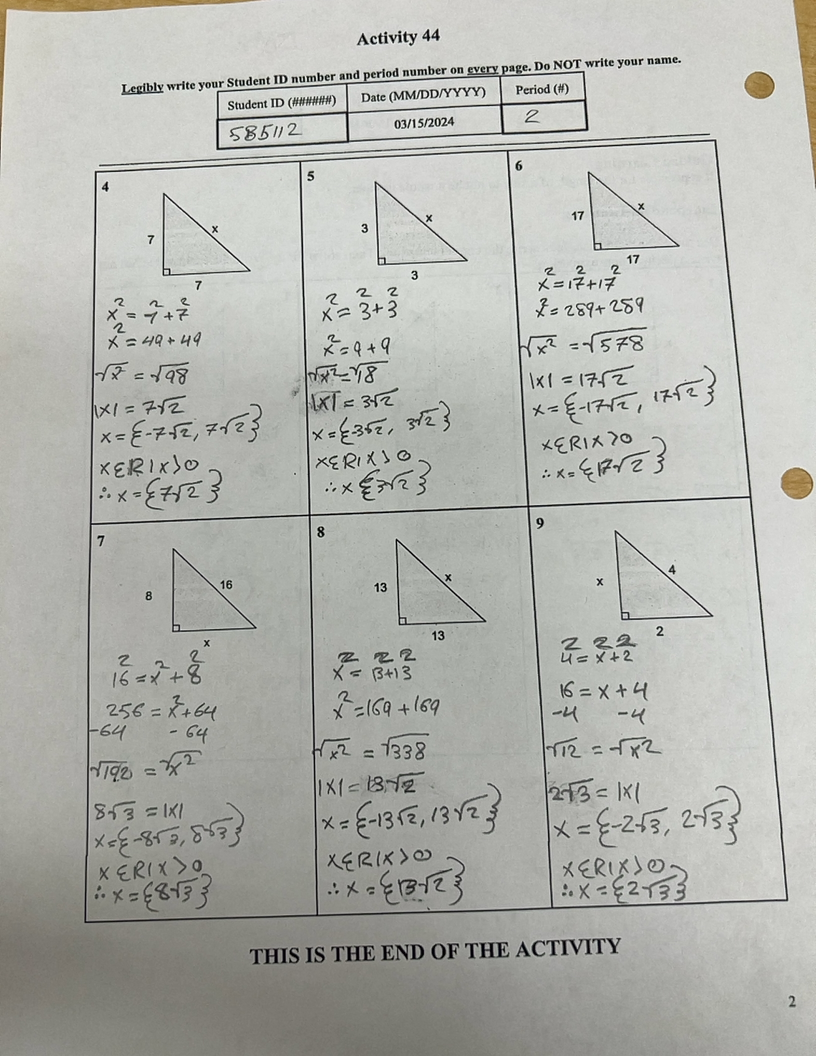 Activity 44
Legibly write your Student ID number and period number on every page. Do NOT write your name.
Student ID (######) Date (MM/DD/YYYY) Period (#)
585112 03/15/2024 2
4
7
x
7
x² = 7² + 7²
x² = 49 + 49
√x² = √98
|x| = 7√2
x = {-7√2, 7√2}
xεR|x>0
∴ x = {7√2}
5
3
x
3
x² = 3² + 3²
x² = 9 + 9
√x² = √18
|x| = 3√2
x = {-3√2, 3√2}
xεR|x>0
∴ x {3√2}
6
17
x
17
x² = 17² + 17²
x² = 289 + 289
√x² = √578
|x| = 17√2
x = {-17√2, 17√2}
xεR|x>0
∴ x = {17√2}
7
8
16
x
16² = x² + 8²
256 = x² + 64
-64 - 64
√192 = √x²
8√3 = |x|
x = {-8√3, 8√3}
xεR|x>0
∴ x = {8√3}
8
13
x
13
x² = 13² + 13²
x² = 169 + 169
√x² = √338
|x| = 13√2
x = {-13√2, 13√2}
xεR|x>0
∴ x = {13√2}
9
x
4
2
4² = x² + 2²
16 = x + 4
-4 -4
√12 = √x²
2√3 = |x|
x = {-2√3, 2√3}
xεR|x>0
∴ x = {2√3}
THIS IS THE END OF THE ACTIVITY
2